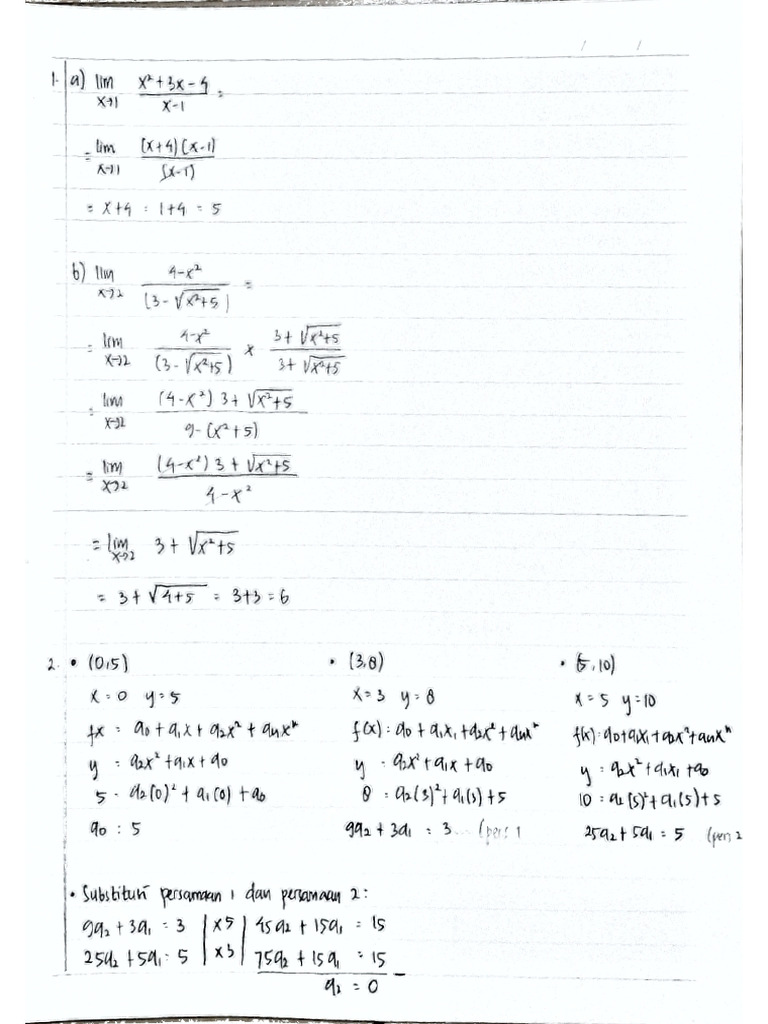 1. a) lim x→1 (x² + 3x - 4)/(x - 1) =
= lim x→1 ((x+4)(x-1))/(x-1)
= x+4 = 1+4 = 5
b) lim x→2 (4-x²)/(3-√(x²+5)) =
= lim x→2 (4-x²)/(3-√(x²+5)) x (3+√(x²+5))/(3+√(x²+5))
= lim x→2 ((4-x²) 3+√(x²+5))/(9-(x²+5))
= lim x→2 ((4-x²) 3+√(x²+5))/(4-x²)
= lim x→2 3+√(x²+5)
= 3+√(4+5) = 3+3 = 6
2. • (0,5)
x = 0 y = 5
fx = a0 + a1x + a2x² + anxⁿ
y = a2x² + a1x + a0
5 = a2(0)² + a1(0) + a0
a0 : 5
• (3,8)
x = 3 y = 8
f(x) : a0 + a1x1 + a2x² + anxⁿ
y = a2x² + a1x + a0
8 = a2(3)² + a1(3) + 5
9a2 + 3a1 = 3 ... (per: 1
• (5,10)
x = 5 y = 10
f(x) : a0 + a1x1 + a2x² + anxⁿ
y = a2x² + a1x1 + a0
10 = a2(5)² + a1(5) + 5
25a2 + 5a1 = 5 (per: 2
• Substitusi persamaan 1 dan persamaan 2 :
9a2 + 3a1 = 3 | x5 | 45a2 + 15a1 = 15
25a2 + 5a1 = 5 | x3 | 75a2 + 15a1 = 15 −
a2 = 0